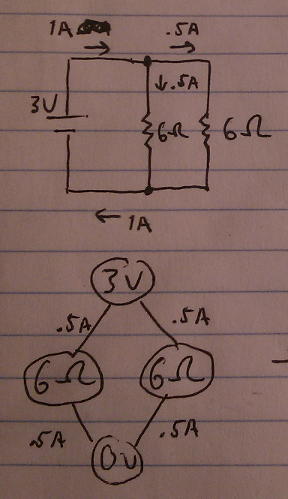 1A .5A
↓.5A
3V
6Ω 6Ω
← 1A
3V
.5A .5A
6Ω 6Ω
.5A .5A
0V